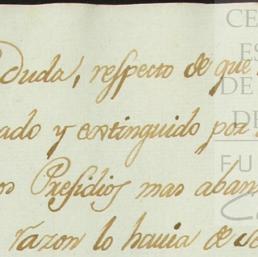 Duda, respecto de que
ado y extinguido por
os Presidios mas aban
razon lo havia de se
CE
ES
DE
DE
FU
C